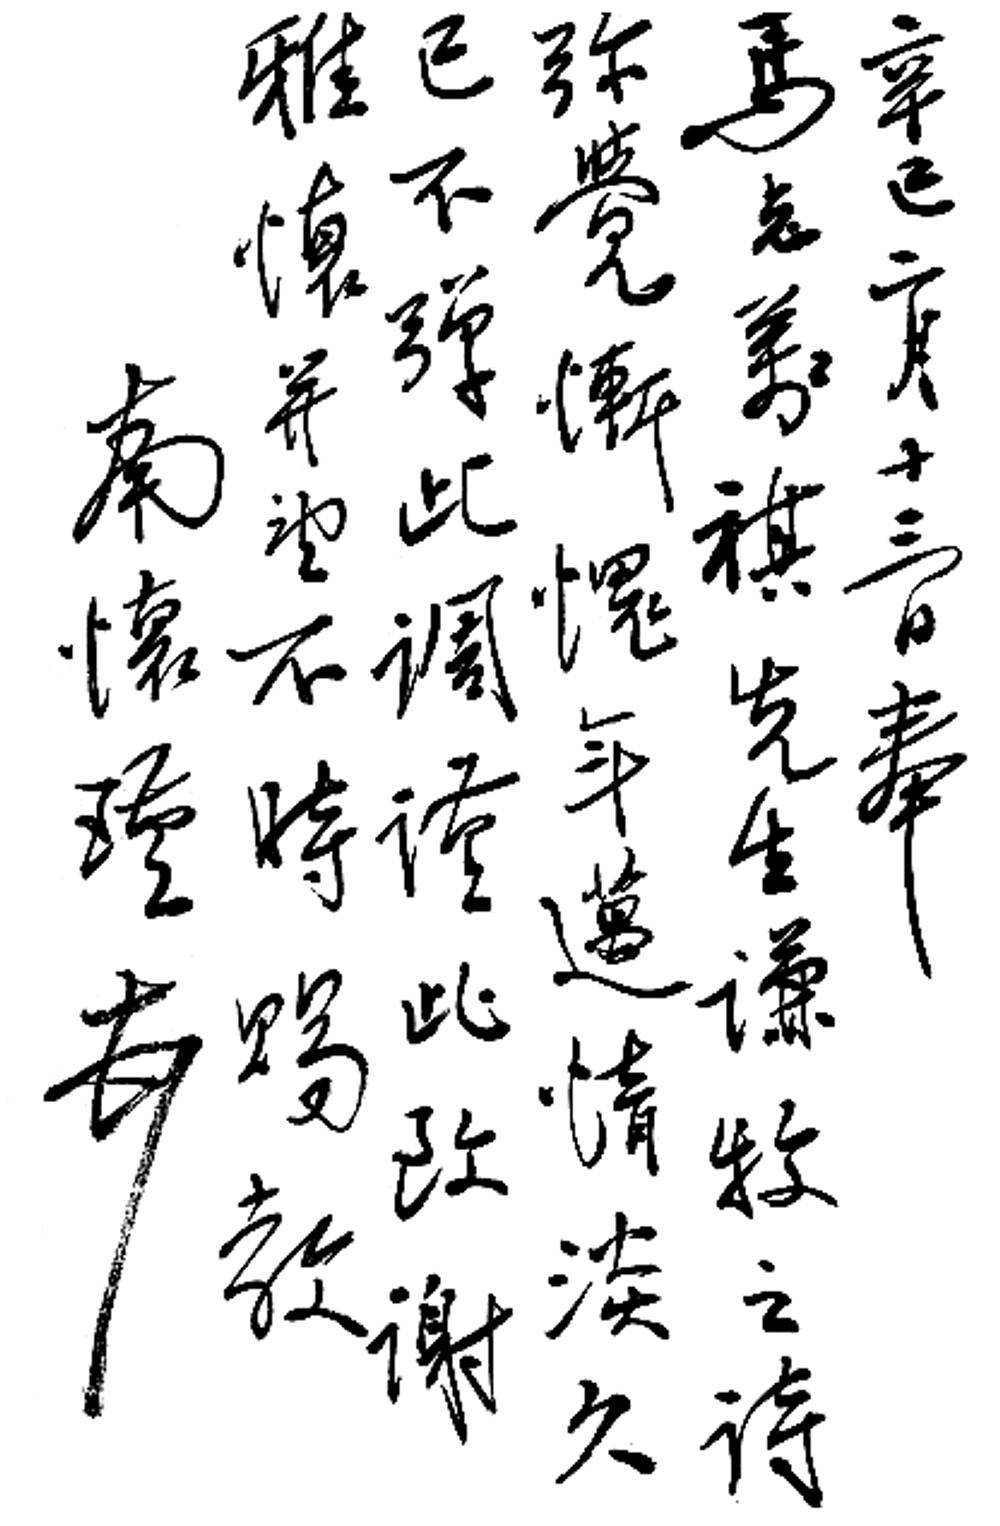 辛巳二月十三日奉
馬老萬祺先生謙牧之詩
弥覺慚愧年邁情淡久
已不彈此調謹此致謝
雅懷并望不時賜教
南懷瑾